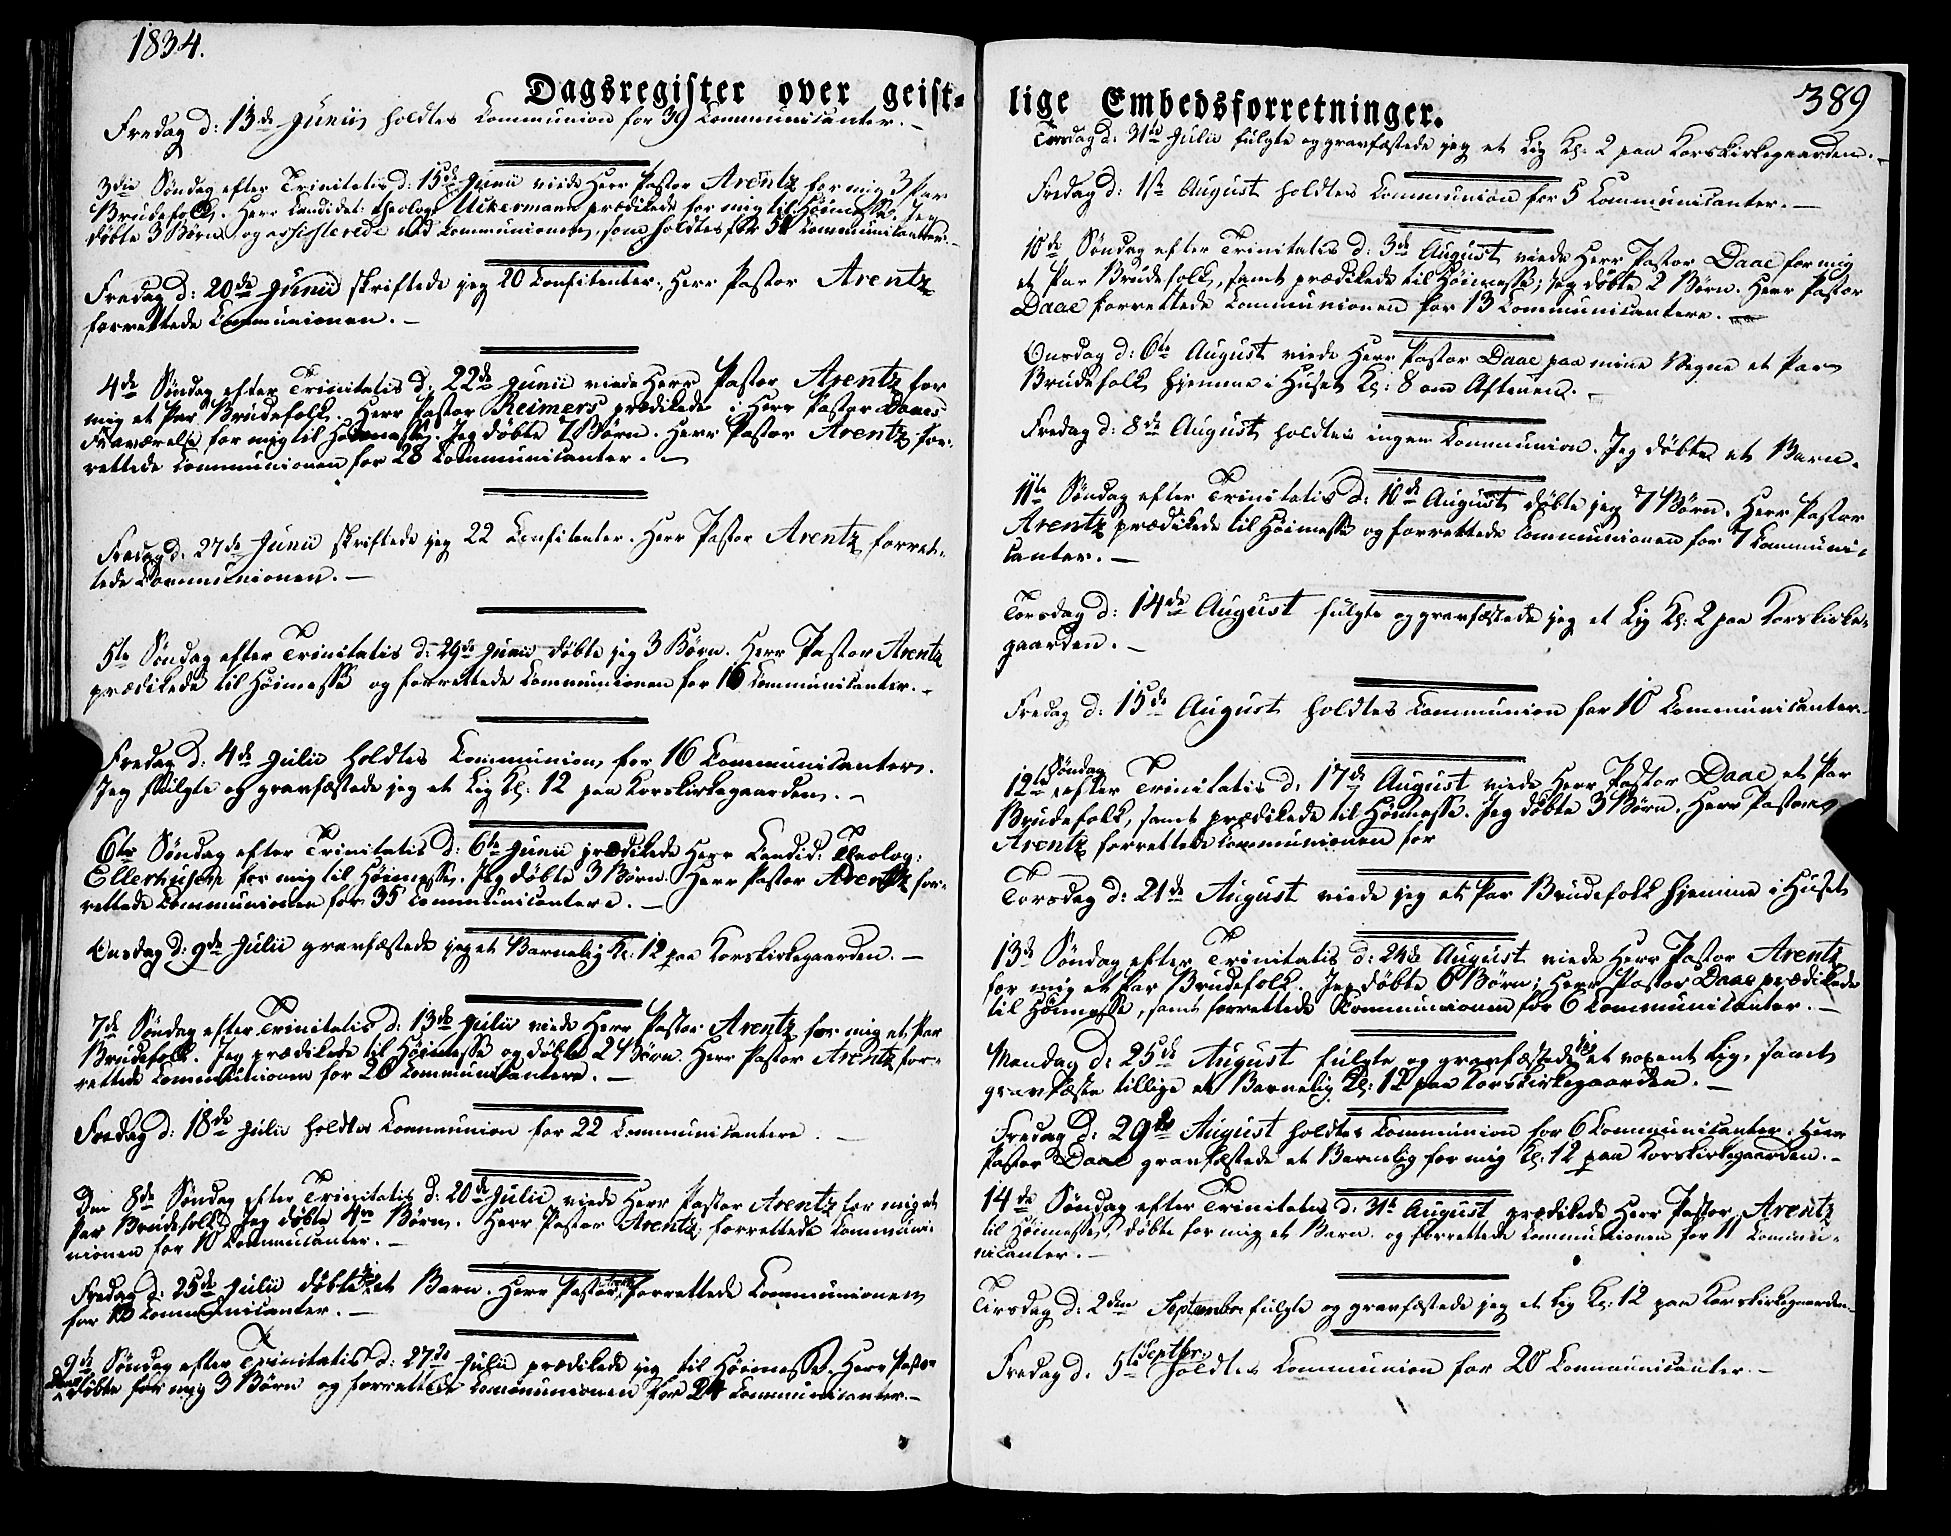 1834.
Dagsregister over geist-
Fredag d: 13de Junii holdtes Communion for 39 Communicanter.
3die Søndag efter Trinitatis d: 15de Junii viede Herr Pastor Arentz for mig 3 Par
Brudefolk. Herr Candidat: theolog: Uckermann prædikede for mig til Høimesse. Jeg
døbte 3 Børn og assisterede ved Communionen, som holdtes for 54 Communicanter.
Fredag d: 20de Junii skriftede jeg 20 Confitenter, Herr Pastor Arentz
forrettede Communionen.
4de Søndag efter Trinitatis d: 22de Junii viede Herr Pastor Arentz for
mig et Par Brudefolk. Herr Pastor Reimers prædikede i Herr Pastor Daaes
Fraværelse for mig til Høimesse. Jeg døbte 7 Børn. Herr Pastor Arentz for-
rettede Communionen for 28 Communicanter.
Fredag d: 27de Junii skriftede jeg 22 Confitenter. Herr Pastor Arentz forret-
tede Communionen.
5te Søndag efter Trinitatis d: 29de Junii døbte jeg 3 Børn. Herr Pastor Arentz
prædikede til Høimesse og forrettede Communionen for 16 Communicanter.
Fredag d: 4de Julii holdtes Communion for 16 Communicanter.
Jeg fulgte og gravfæstede jeg et Lig Kl: 12 paa Korskirkegaarden.
6te Søndag efter Trinitatis d: 6te Junii prædikede Herr Candid: Theolog:
Ellerhusen for mig til Høimesse. Jeg døbte 3 Børn. Herr Pastor Arentz for-
rettede Communionen for 35 Communicantere.
Onsdag d: 9de Julii gravfæstede jeg et Barnelig Kl: 12 paa Korskirkegaarden.
7de Søndag efter Trinitatis d: 13de Julii viede Herr Pastor Arentz for mig et Par
Brudefolk. Jeg prædikede til Høimesse og døbte 2 Børn. Herr Pastor Arentz for-
rettede Communionen for 26 Communicantere.
Fredag d: 18de Julii holdtes Communion for 22 Communicantere.
Den 8de Søndag efter Trinitatis d: 20de Julii viede Herr Pastor Arentz for mig et
Par Brudefolk. Jeg døbte 4re Børn. Herr Pastor Arentz forrettede Communi-
nionen for 10 Communicanter.
Fredag d: 25de Julii døbte jeg et Barn. Herr Pastor Arentz forrettede Communionen
for 13 Communicanter.
9de Søndag efter Trinitatis d: 27de Julii prædikede jeg til Høimesse. Herr Pastor
Daae døbte for mig 3 Børn og forrettede Communionen for 24 Communicanter.
389
lige Embedsforretninger.
Torsdag d: 31te Julii fulgte og gravfæstede jeg et Lig Kl: 2 paa Korskirkegaarden.
Fredag d: 1ste August holdtes Communion for 5 Communicanter.
10de Søndag efter Trinitatis d: 3de August viede Herr Pastor Daae for mig
et Par Brudefolk, samt prædikede til Høimesse; jeg døbte 2 Børn. Herr Pastor
Daae forrettede Communionen for 13 Communicantere.
Onsdag d: 6te August viede Herr Pastor Daae paa mine Vegne et Par
Brudefolk hjemme i Huset Kl: 8 om Aftenen.
Fredag d: 8de August holdtes ingen Communion. Jeg døbte et Barn.
11te Søndag efter Trinitatis d: 10de August døbte jeg 7 Børn. Herr Pastor
Arentz prædikede til Høimesse og forrettede Communionen for 7 Communi-
canter.
Torsdag d: 14de August fulgte og gravfæstede jeg et Lig Kl: 2 paa Korskirke-
gaarden.
Fredag d: 15de August holdtes Communion for 10 Communicanter.
12te Søndag efter Trinitatis d: 17de August viede Herr Pastor Daae et Par
Brudefolk, samt prædikede til Høimesse. Jeg døbte 3 Børn. Herr Pastor
Arentz forrettede Communionen for
Torsdag d: 21de August viede jeg et Par Brudefolk hjemme i Huset
13de Søndag efter Trinitatis d: 24de August viede Herr Pastor Arentz
for mig et Par Brudefolk. Jeg døbte 6 Børn; Herr Pastor Daae prædikede
til Høimesse, samt forrettede Kommunionen for 6 Communicanter.
Mandag d: 25de August fulgte og gravfæstede jeg et voxent Lig, samt
gravfæste tillige et Barnelig Kl: 12 paa Korskirkegaarden.
Fredag d: 29de August holdtes Communion for 6 Communicanter. Herr
Pastor Daae gravfæstede et Barnelig for mig Kl: 12 paa Korskirkegaarden.
14de Søndag efter Trinitatis d: 31te August prædikede Herr Pastor Arentz
til Høimesse, døbte for mig et Barn og forrettede Communionen for 11 Commu-
nicanter.
Tirsdag d: 2den September fulgte og gravfæstede jeg et Lig Kl: 12 paa Korskirkegaarden.
Fredag d. 5te Septbr: holdtes Communion for 20 Communicanter.